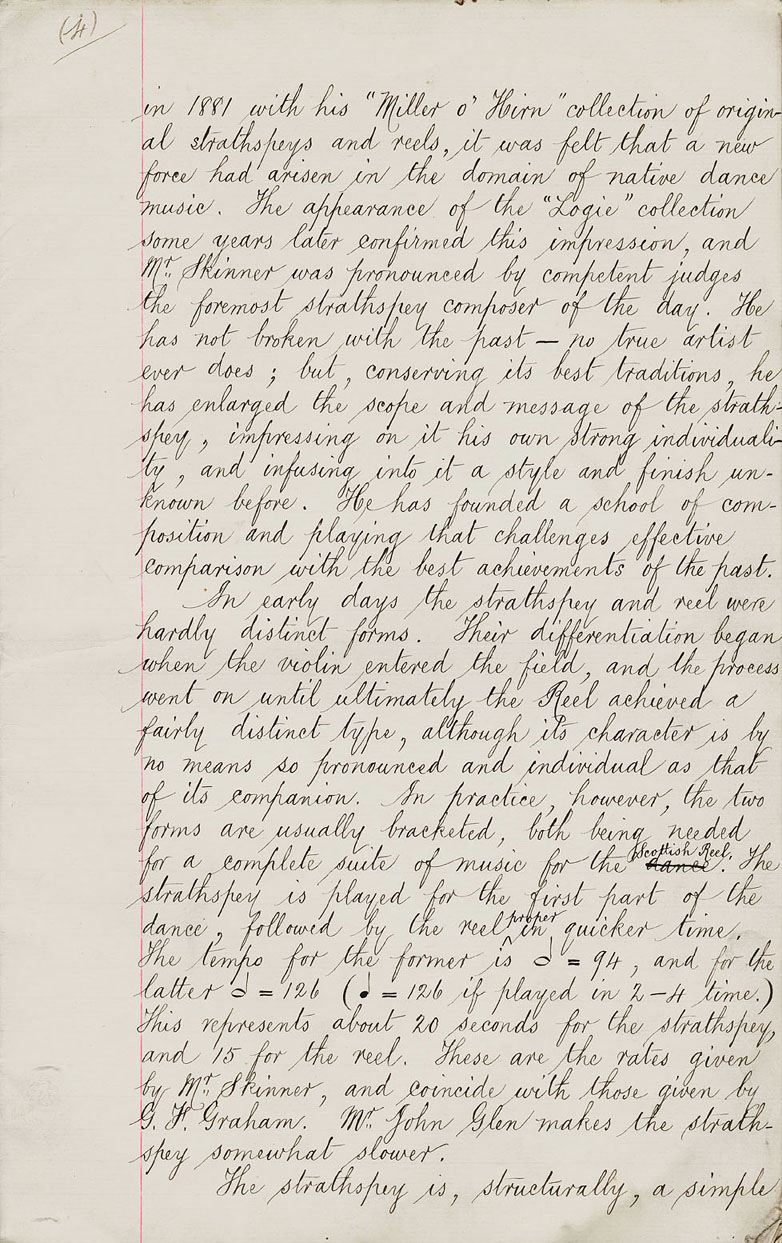 (4)
in 1881 with his "Miller o' Hirn" collection of origin-
al strathspeys and reels, it was felt that a new
force had arisen in the domain of native dance
music. The appearance of the "Logie" collection
some years later confirmed this impression, and
Mr. Skinner was pronounced by competent judges
the foremost strathspey composer of the day. He
has not broken with the past — no true artist
ever does; but, conserving its best traditions, he
has enlarged the scope and message of the strath-
spey, impressing on it his own strong individuali-
ty, and infusing into it a style and finish un-
known before. He has founded a school of com-
position and playing that challenges effective
comparison with the best achievements of the past.
In early days the strathspey and reel were
hardly distinct forms. Their differentiation began
when the violin entered the field, and the process
went on until ultimately the Reel achieved a
fairly distinct type, although its character is by
no means so pronounced and individual as that
of its companion. In practice, however, the two
forms are usually bracketed, both being needed
for a complete suite of music for the dance Scottish Reel. The
strathspey is played for the first part of the
dance, followed by the reel proper in quicker time.
The tempo for the former is 𝅗𝅥 = 94, and for the
latter 𝅗𝅥 = 126 (♩ = 126 if played in 2–4 time.)
This represents about 20 seconds for the strathspey,
and 15 for the reel. These are the rates given
by Mr. Skinner, and coincide with those given by
G. F. Graham. Mr. John Glen makes the strath-
spey somewhat slower.
The strathspey is, structurally, a simple